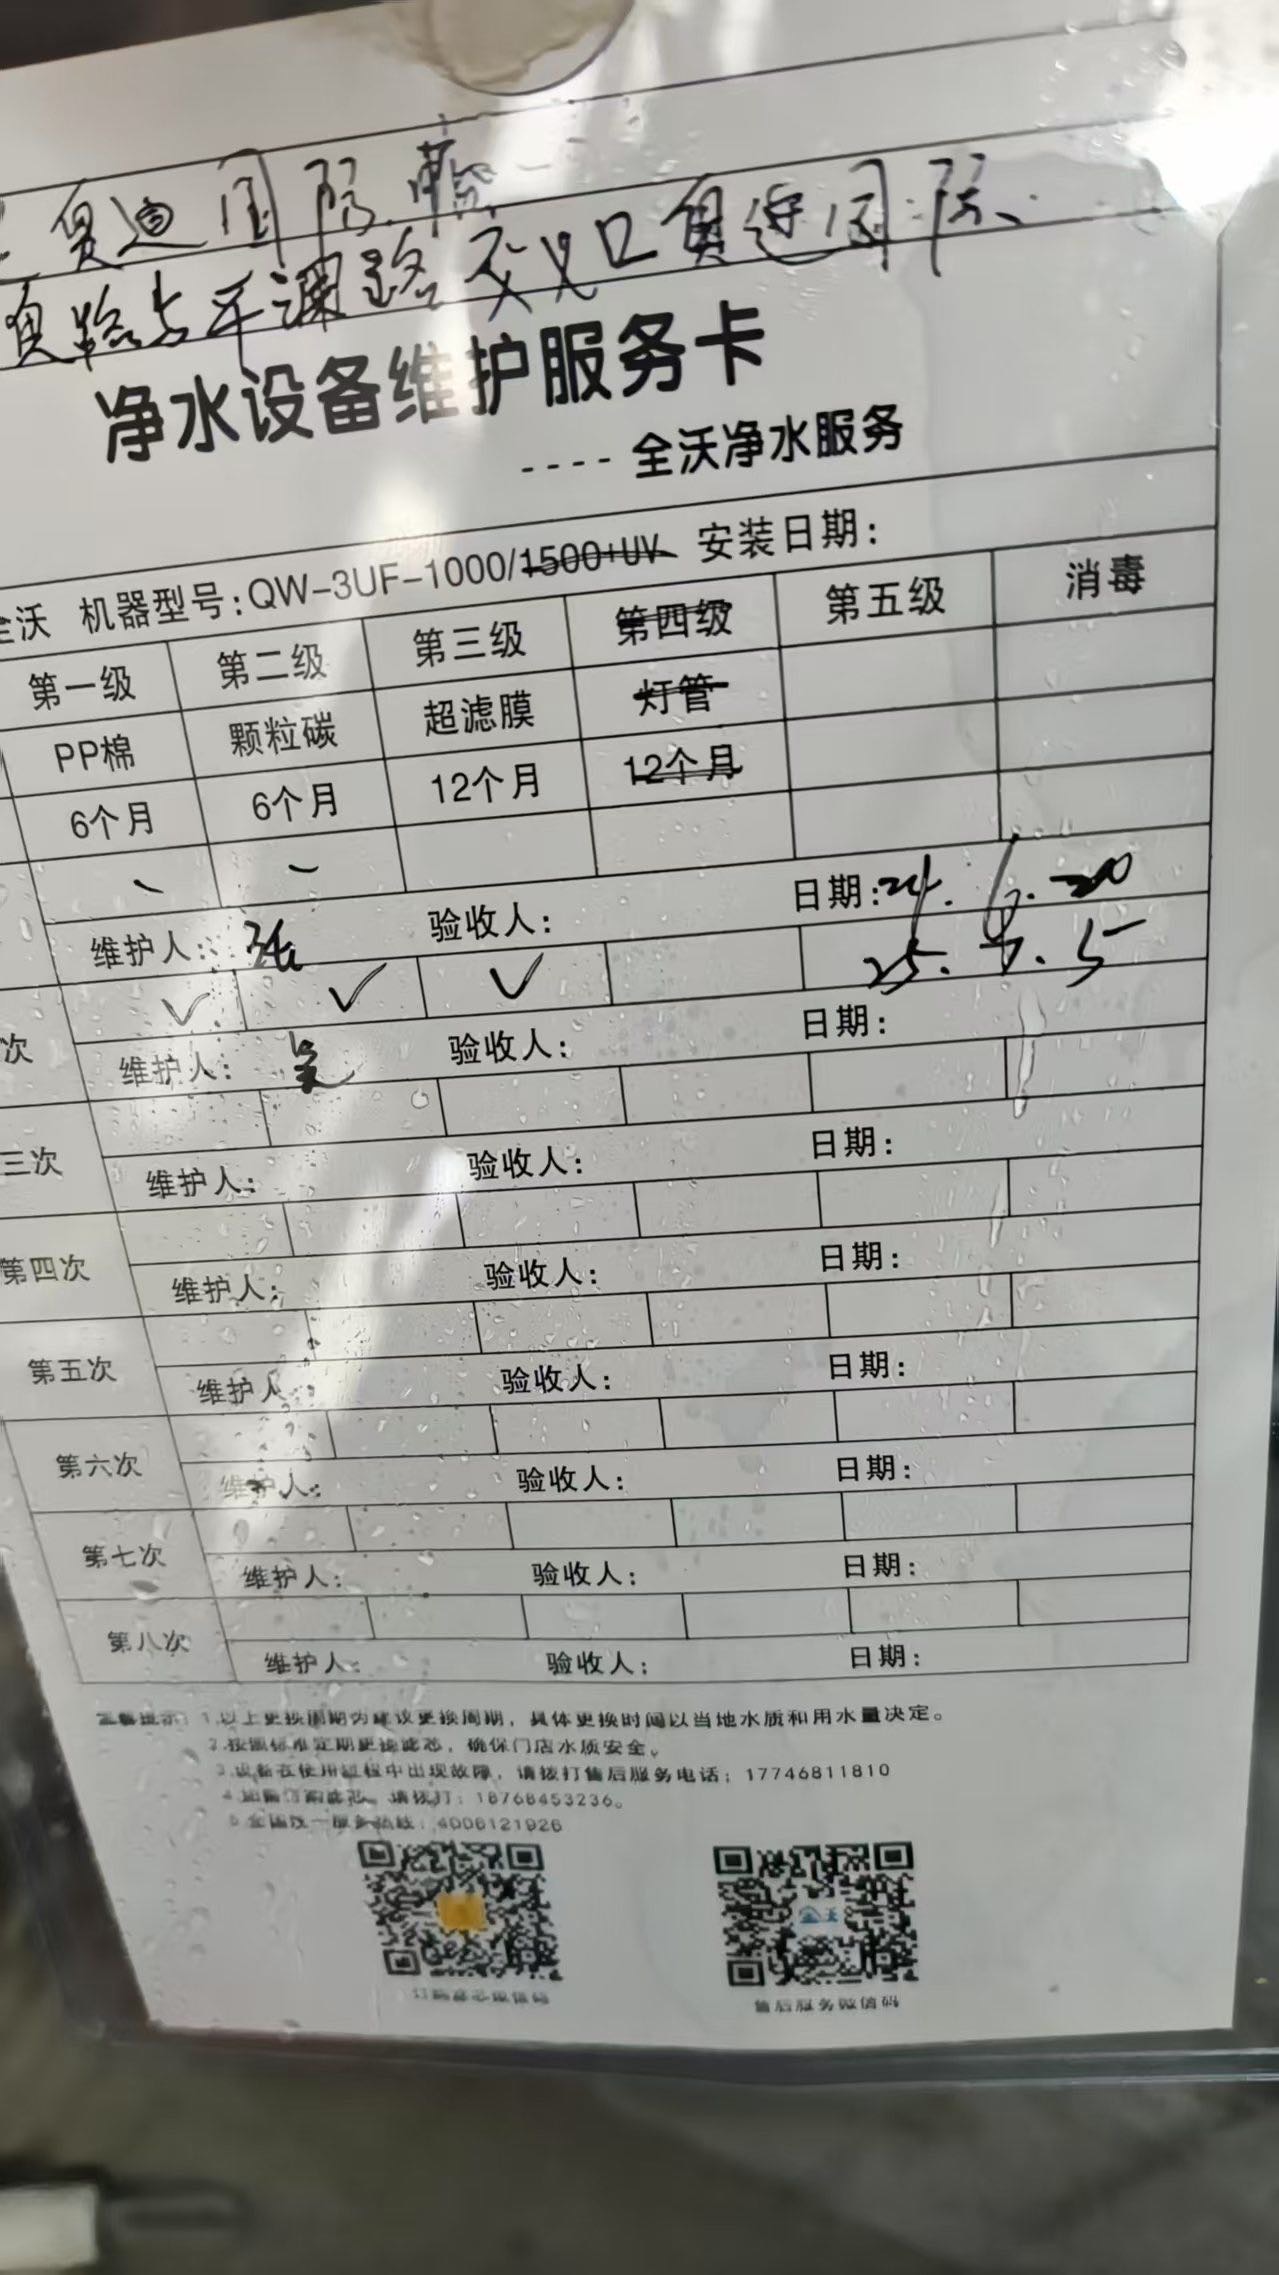 奥迪国际
路与平澜路交叉口奥迪国际
净水设备维护服务卡
----全沃净水服务
全沃 机器型号:QW-3UF-1000/1500+UV 安装日期:
第一级 第二级 第三级 第四级 第五级 消毒
PP棉 颗粒碳 超滤膜 灯管
6个月 6个月 12个月 12个月
维护人: 张 验收人: 日期:24. .20
✓ ✓ ✓ 25.7.5
次 维护人: 吴 验收人: 日期:
三次 维护人: 验收人: 日期:
第四次 维护人: 验收人: 日期:
第五次 维护人 验收人: 日期:
第六次 维护人: 验收人: 日期:
第七次 维护人: 验收人: 日期:
第八次 维护人: 验收人: 日期:
温馨提示: 1.以上更换周期为建议更换周期，具体更换时间以当地水质和用水量决定。
2.按照标准定期更换滤芯，确保门店水质安全。
3.设备在使用过程中出现故障，请拨打售后服务电话；17746811810
请拨打：18768453236。
5.全国统一服务热线：4006121926
订购滤芯微信码 售后服务微信码